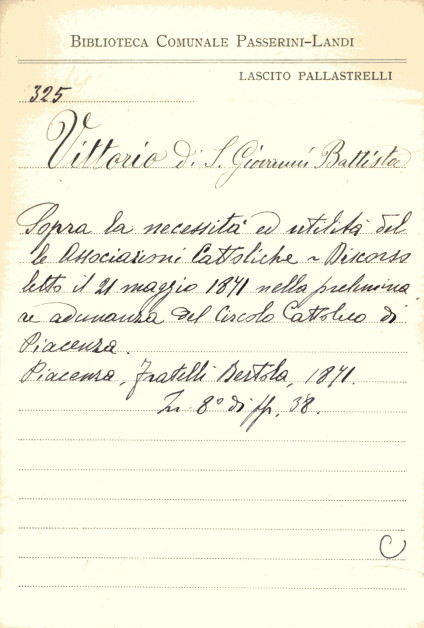 BIBLIOTECA COMUNALE PASSERINI-LANDI
LASCITO PALLASTRELLI
325
Vittorio di S. Giovanni Battista
Sopra la necessità ed utilità del
le Associazioni Cattoliche ~ Discorso
letto il 21 maggio 1871 nella prelimina
re adunanza del Circolo Cattolico di
Piacenza.
Piacenza, Fratelli Bertola, 1871.
In 8° di pp. 38.
C